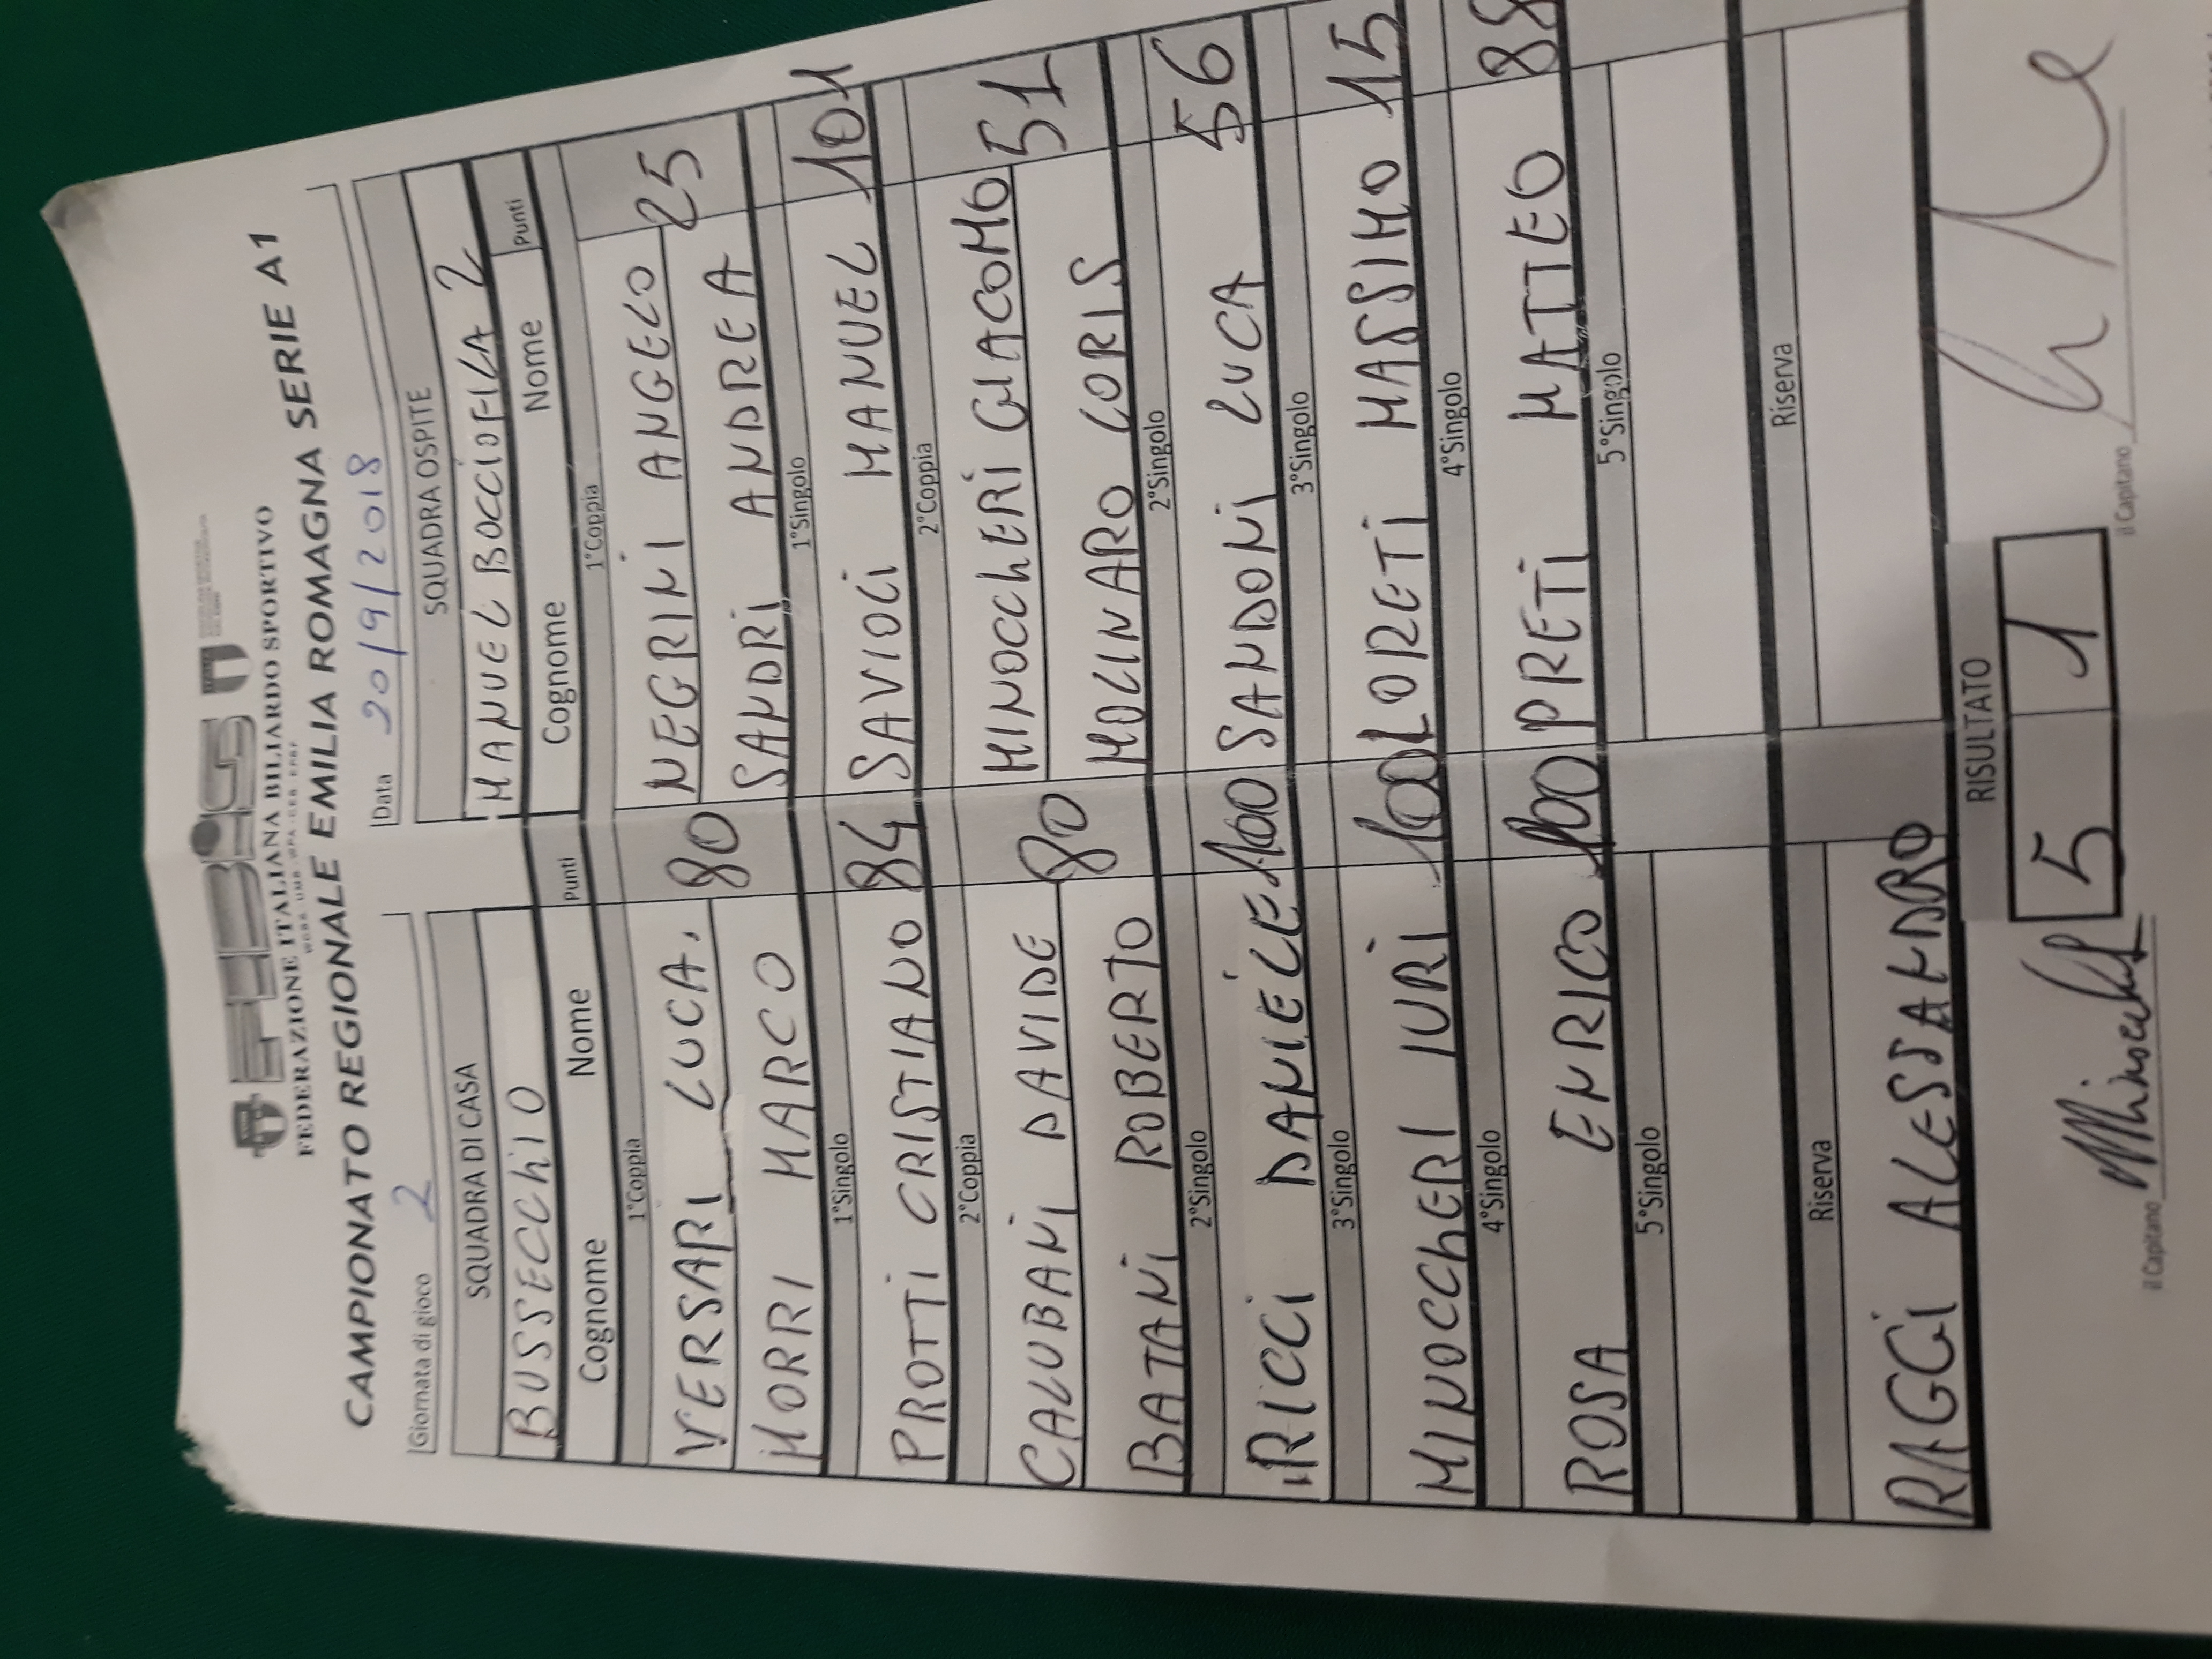 FEBiS
FEDERAZIONE ITALIANA BILIARDO SPORTIVO
CAMPIONATO REGIONALE EMILIA ROMAGNA SERIE A1
Giornata di gioco 2 Data 20/9/2018
SQUADRA DI CASA SQUADRA OSPITE
BUSSECChiO MANUEL BOCCIOFILA 2
Cognome Nome Punti Cognome Nome Punti
1°Coppia 1°Coppia
VERSARI LUCA. 80 NEGRINI ANGELO 25
MORRI MARCO SANDRI ANDREA
1°Singolo 1°Singolo
PROTTI CRISTIANO 84 SAVIOLI MANUEL 101
2°Coppia 2°Coppia
CALUBANI DAVIDE 80 MINOCChERI GIACOMO 51
BATANI ROBERTO MOLINARO LORIS
2°Singolo 2°Singolo
RICCI DANIELE 100 SANDONI LUCA 56
3°Singolo 3°Singolo
MINOCChERI IURI 100 LORETI MASSIMO 15
4°Singolo 4°Singolo
ROSA ENRICO 100 PRETI MATTEO 88
5°Singolo 5°Singolo
Riserva Riserva
RAGGI ALESSANDRO
RISULTATO
il Capitano 5 1 il Capitano